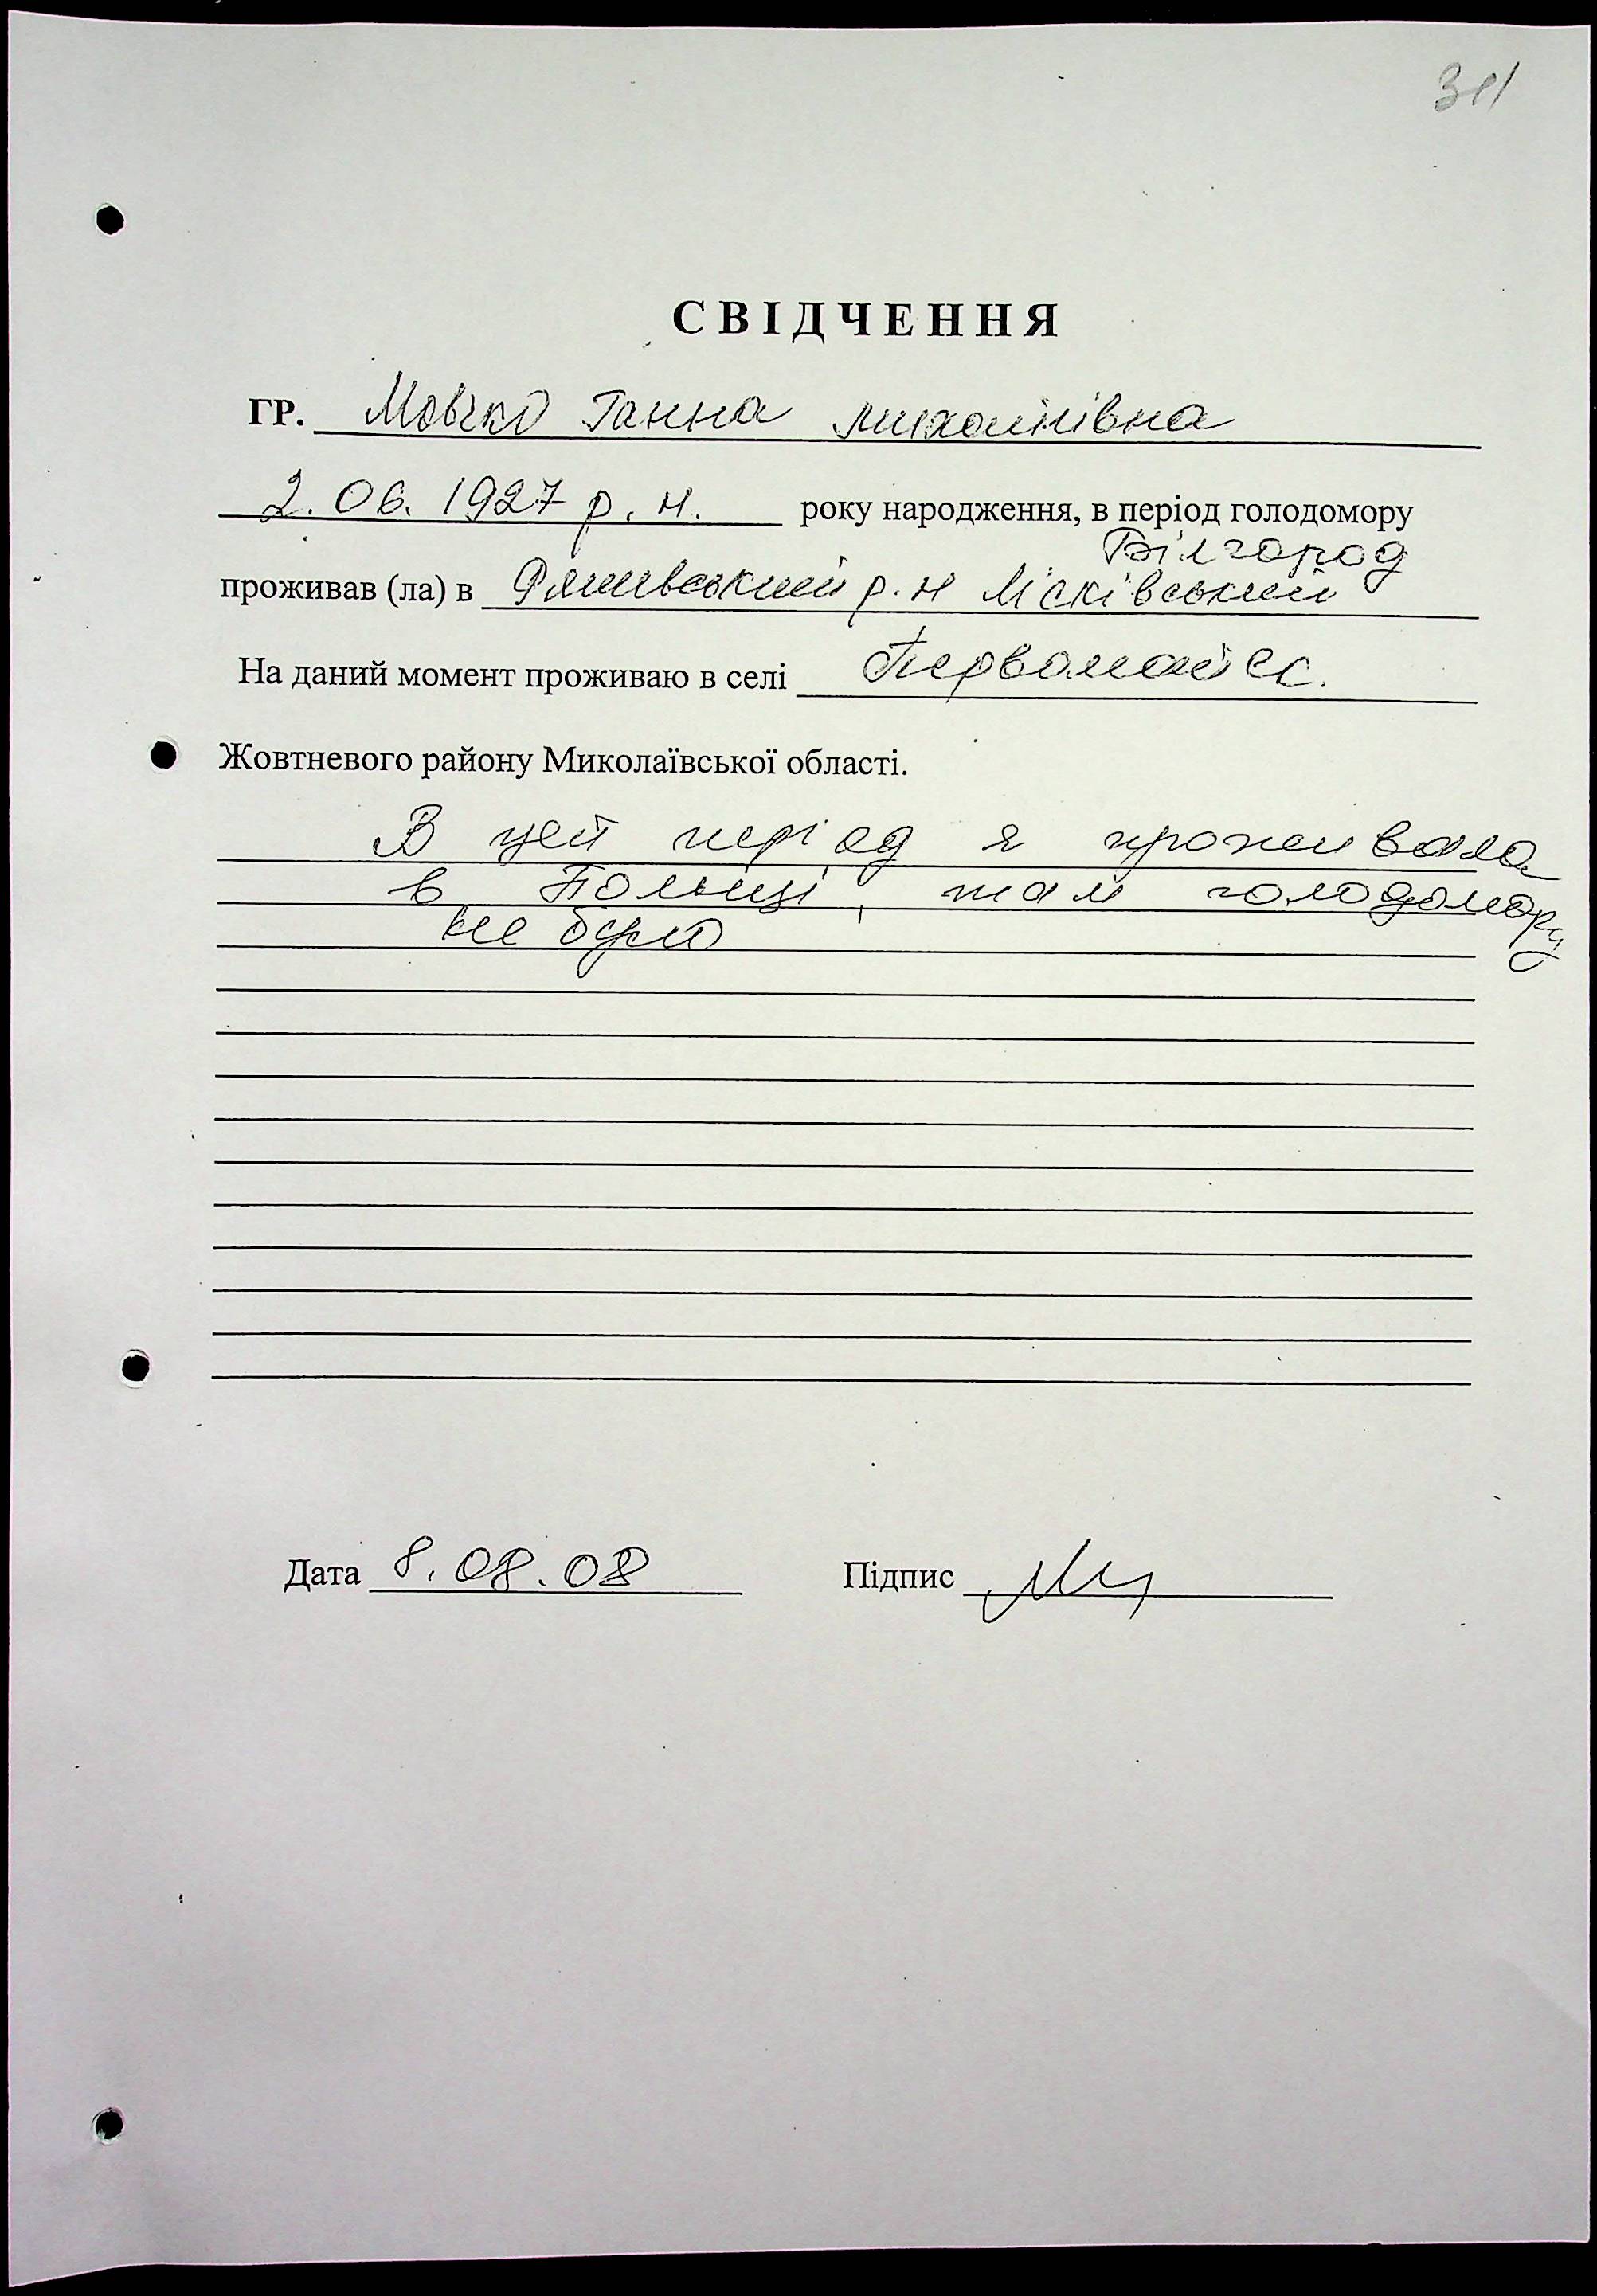 311
СВІДЧЕННЯ
ГР. Мовчко Ганна Михайлівна
2.06.1927 р.н. року народження, в період голодомору
Білгород
проживав (ла) в Ряшивський р.н Лісківський
На даний момент проживаю в селі Первомайск.
Жовтневого району Миколаївської області.
В цей період я проживала
в Польщі, там голодомору
не було
Дата 8.08.08 Підпис